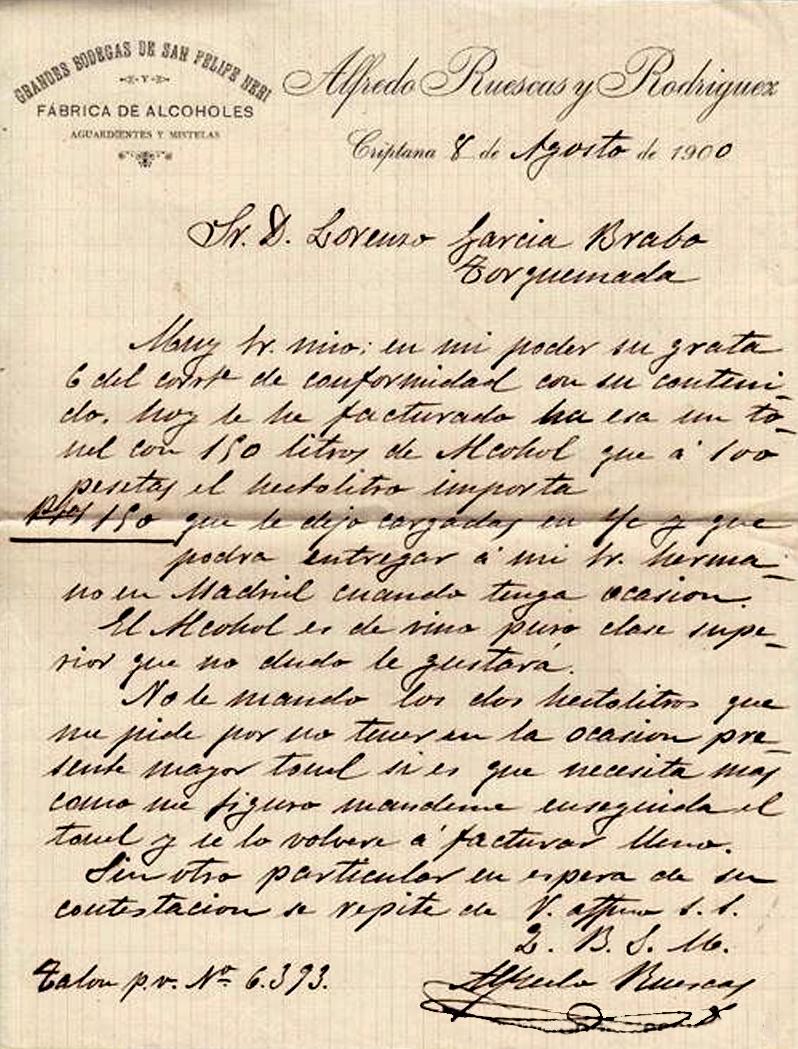 GRANDES BODEGAS DE SAN FELIPE NERI
Y
FÁBRICA DE ALCOHOLES
AGUARDIENTES Y MISTELAS
Alfredo Ruescas y Rodriguez
Criptana 8 de Agosto de 1900
Sr. D. Lorenzo Garcia Brabo
Torquemada
Muy Sr. mio: en mi poder su grata
6 del corrte de conformidad con su conteni-
do. hoy le he facturado ha esa un to-
nel con 150 litros de Alcohol que á 100
pesetas el hectolitro importa
Ptas 150 que le dejo cargadas en s/c y que
podra entregar á mi Sr. herma-
no en Madrid cuando tenga ocasion.
El Alcohol es de vino puro clase supe-
rior que no dudo le gustará.
No le mando los dos hectolitros que
me pide por no tener en la ocasion pre-
sente mayor tonel si es que necesita mas
como me figuro mandeme enseguida el
tonel y se lo volvere á facturar lleno.
Sin otro particular en espera de su
contestacion se repite de V. affmo s. s.
Q. B. S. M.
Talon p.v. No 6.393.
Alfredo Ruescas